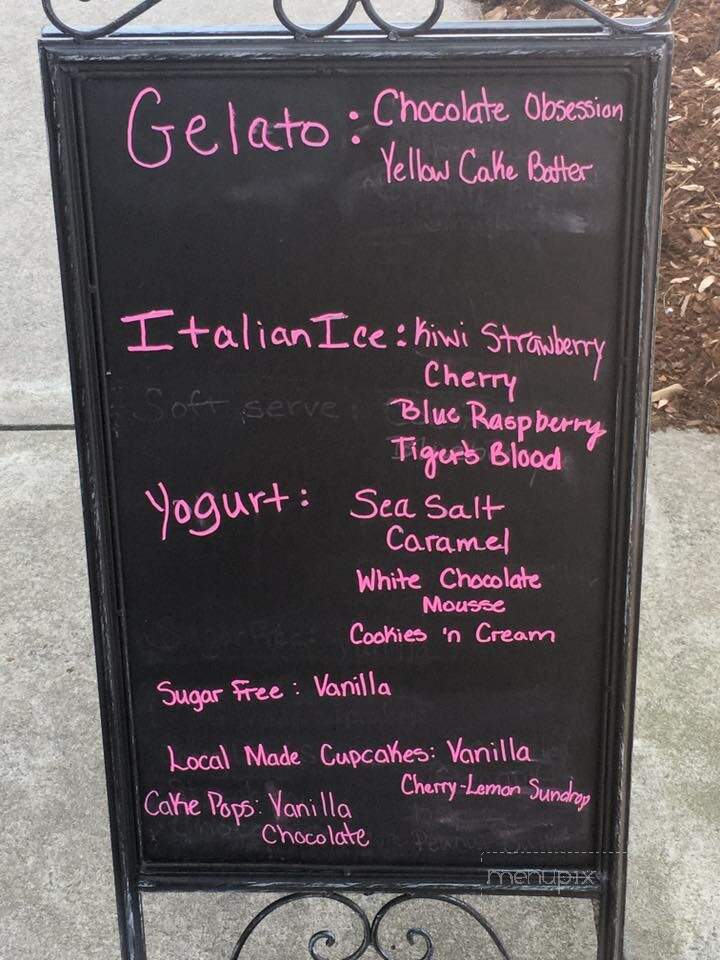 Gelato: Chocolate Obsession
Yellow Cake Batter
Italian Ice: Kiwi Strawberry
Cherry
Soft serve:
Blue Raspberry
Tiger's Blood
Yogurt: Sea Salt
Caramel
White Chocolate
Mousse
Cookies 'n Cream
Sugar Free: Vanilla
Local Made Cupcakes: Vanilla
Cherry-Lemon Sundrop
Cake Pops: Vanilla
Chocolate
menupix